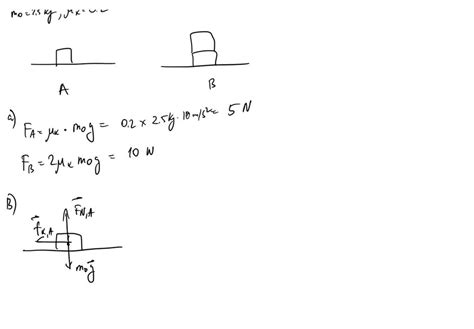 m₀=2.5kg, μₖ=0.2
A
B
a)
F_A = μₖ · m₀g = 0.2 x 2.5kg · 10 m/s² = 5 N
F_B = 2μₖ m₀g = 10 N
B)
F⃗_N,A
f⃗_k,A
m₀g⃗